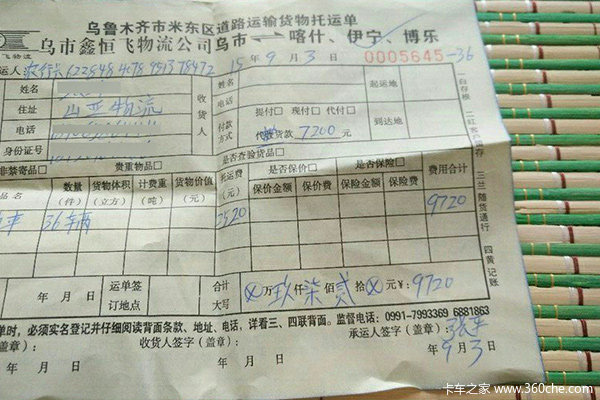 乌鲁木齐市米东区道路运输货物托运单
乌市鑫恒飞物流公司乌市 喀什、伊宁、博乐
飞物流
15 年 9 月 3 日 0005645-36
运人
姓名
姓名
起运地
住址 山亚物流
收货人
电话
电话
付款方式
提付□ 现付□ 代付□
到达地
身份证号
代收货款 7200 元
非禁寄品□ 贵重物品□ 是否查验货品□
是否保价□ 是否保险□
品名 数量(件) 货物体积(立方) 计费重(吨) 货物价值(元) 托运费(元) 保价金额 保价费 保险金额 保险费 费用合计
36辆 2520 9720
年 月 日
运单签订地点
合计大写
万 玖仟 柒佰 贰拾 元 ¥: 9720
单时，必须实名登记并仔细阅读背面条款、地址、电话，详看三、四联背面。监督电话: 0991-7993369 6881863
盖章）：
收货人签字（盖章）：
承运人签字（盖章）：
年 月 日
年 月 日
年 9 月 3 日
一白存根 二红客户留存 三兰随货通行 四黄记账
卡车之家 www.360che.com